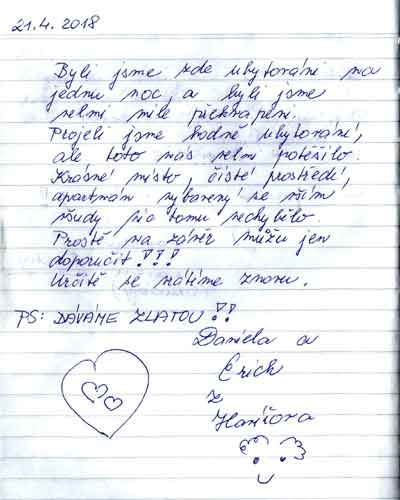 21.4. 2018
Byli jsme zde ubytováni na
jednu noc, a byli jsme
velmi mile překvapeni.
Projeli jsme hodně ubytování,
ale toto nás velmi potěšilo.
Krásné místo, čisté prostředí,
apartmán vybavený se vším
všudy, nic tomu nechybělo.
Prostě na závěr můžu jen
doporučit!!!
Určitě se vrátíme znovu.
PS: DÁVÁME ZLATOU!!
Daniela a
Erich
z